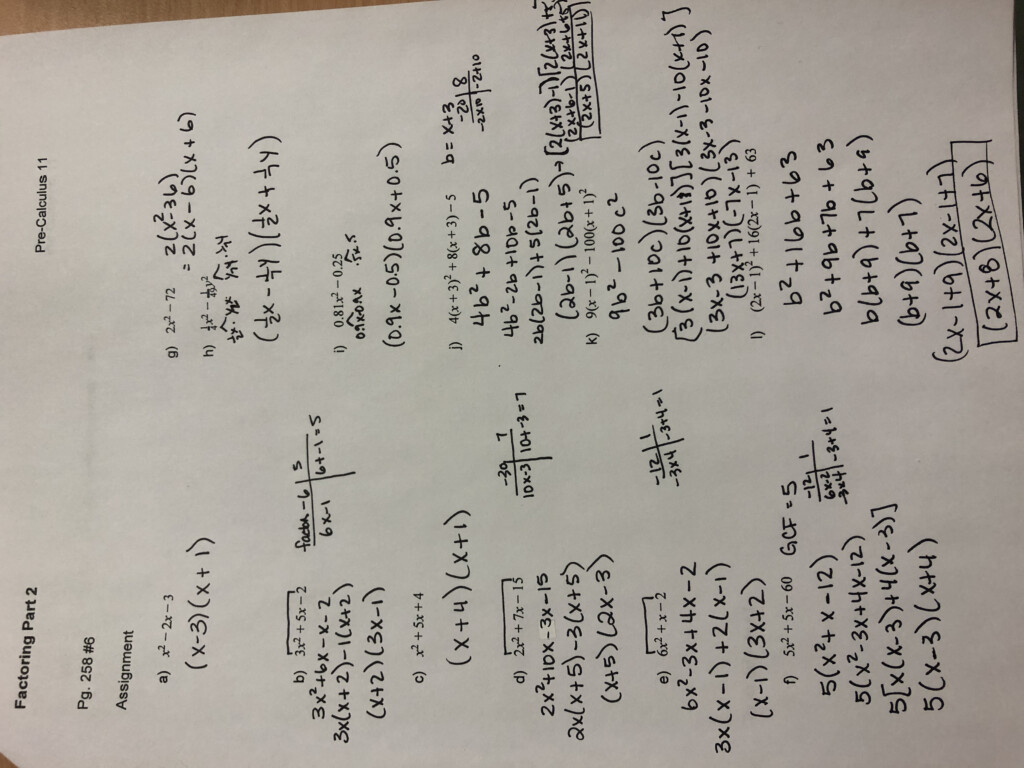 Factoring Part 2
Pre-Calculus 11
Pg. 258 #6
Assignment
a) x² − 2x − 3
(x−3)(x+1)
b) 3x² + 5x − 2
factor −6 | 5
6x−1 | 6+−1=5
3x²+6x−x−2
3x(x+2)−1(x+2)
(x+2)(3x−1)
c) x² + 5x + 4
(x+4)(x+1)
d) 2x² + 7x − 15
−30 | 7
10x−3 | 10+−3=7
2x²+10x−3x−15
2x(x+5)−3(x+5)
(x+5)(2x−3)
e) 6x² + x − 2
−12 | 1
−3x4 | −3+4=1
6x²−3x+4x−2
3x(x−1)+2(x−1)
(x−1)(3x+2)
f) 5x² + 5x − 60 GCF = 5
−12 | 1
6x−2
−3x4 | −3+4=1
5(x²+x−12)
5(x²−3x+4x−12)
5[x(x−3)+4(x−3)]
5(x−3)(x+4)
g) 2x² − 72 = 2(x²−36)
= 2(x−6)(x+6)
h) ¼x² − 1/49y²
(½x − ¼y)(½x + ¼y)
i) 0.81x² − 0.25
0.9x0.9x .5x.5
(0.9x−0.5)(0.9x+0.5)
j) 4(x + 3)² + 8(x + 3) − 5 b = x+3
−20 | 8
−2x10 | −2+10
4b² + 8b − 5
4b²−2b+10b−5
2b(2b−1)+5(2b−1)
(2b−1)(2b+5) → [2(x+3)−1][2(x+3)+5
(2x+6−1)(2x+6+5)
(2x+5)(2x+11)
k) 9(x − 1)² − 100(x + 1)²
9b² − 100c²
(3b+10c)(3b−10c)
[3(x−1)+10(x+1)][3(x−1)−10(x+1)]
(3x−3+10x+10)(3x−3−10x−10)
(13x+7)(−7x−13)
l) (2x − 1)² + 16(2x − 1) + 63
b²+16b+63
b²+9b+7b+63
b(b+9)+7(b+9)
(b+9)(b+7)
(2x−1+9)(2x−1+7)
(2x+8)(2x+6)